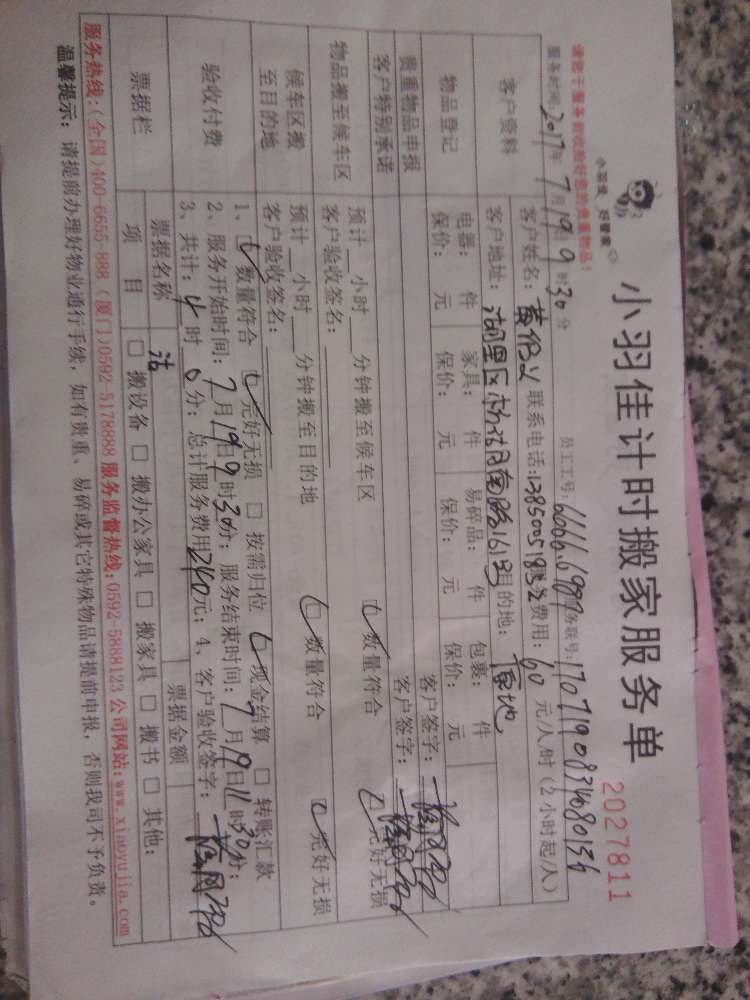 小羽佳 好管家
小羽佳计时搬家服务单
2027811
请您于服务前收拾好您的贵重物品!
员工工号: 6666.6989 服务联号: 170719083408013
服务时间: 2017年7月19日9时30分
客户资料
客户姓名: 黄 联系电话: 费用: 60 元/人/时 (2小时起/人)
客户地址: 湖里区 南路161号 目的地: 原地
物品登记
电器: 件 家具: 件 易碎品: 件 包裹: 件
保价: 元 保价: 元 保价: 元 保价: 元
贵重物品申报 客户签字:
客户特别承诺 客户签字:
物品搬至候车区
预计__小时__分钟搬至候车区 数量符合 完好无损
客户验收签名:
候车区搬至目的地
预计__小时__分钟搬至目的地 数量符合 完好无损
客户验收签名:
验收付费
1、 数量符合 完好无损 □ 按需归位 现金结算 □ 转账汇款
2、服务开始时间: 7月19日9时30分; 服务结束时间: 7月19日11时30分;
3、共计: 4时0分; 总计服务费用240元; 4、客户验收签字:
票据栏
票据名称 洁 票据金额
项 目 □ 搬设备 □ 搬办公家具 □ 搬家具 □ 搬书 □ 其他:
服务热线:(全国)400-6655-888 (厦门)0592-5178888 服务监督热线:0592-5888123 公司网站:www.xiaoyujia.com
温馨提示: 请提前办理好物业通行手续, 如有贵重、易碎或其它特殊物品请提前申报, 否则我司不予负责。